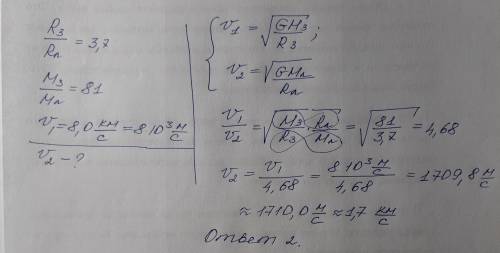 R₃/Rл = 3,7
M₃/Mл = 81
V₁ = 8,0 км/с = 8 10³ м/с
V₂ - ?
V₁ = √(GM₃/R₃) ;
V₂ = √(GMл/Rл)
V₁/V₂ = √(M₃/R₃ · Rл/Mл) = √(81/3,7) = 4,68
V₂ = V₁/4,68 = 8 10³ м/с / 4,68 = 1709,8 м/с
≈ 1710,0 м/с ≈ 1,7 км/с
Ответ 2.